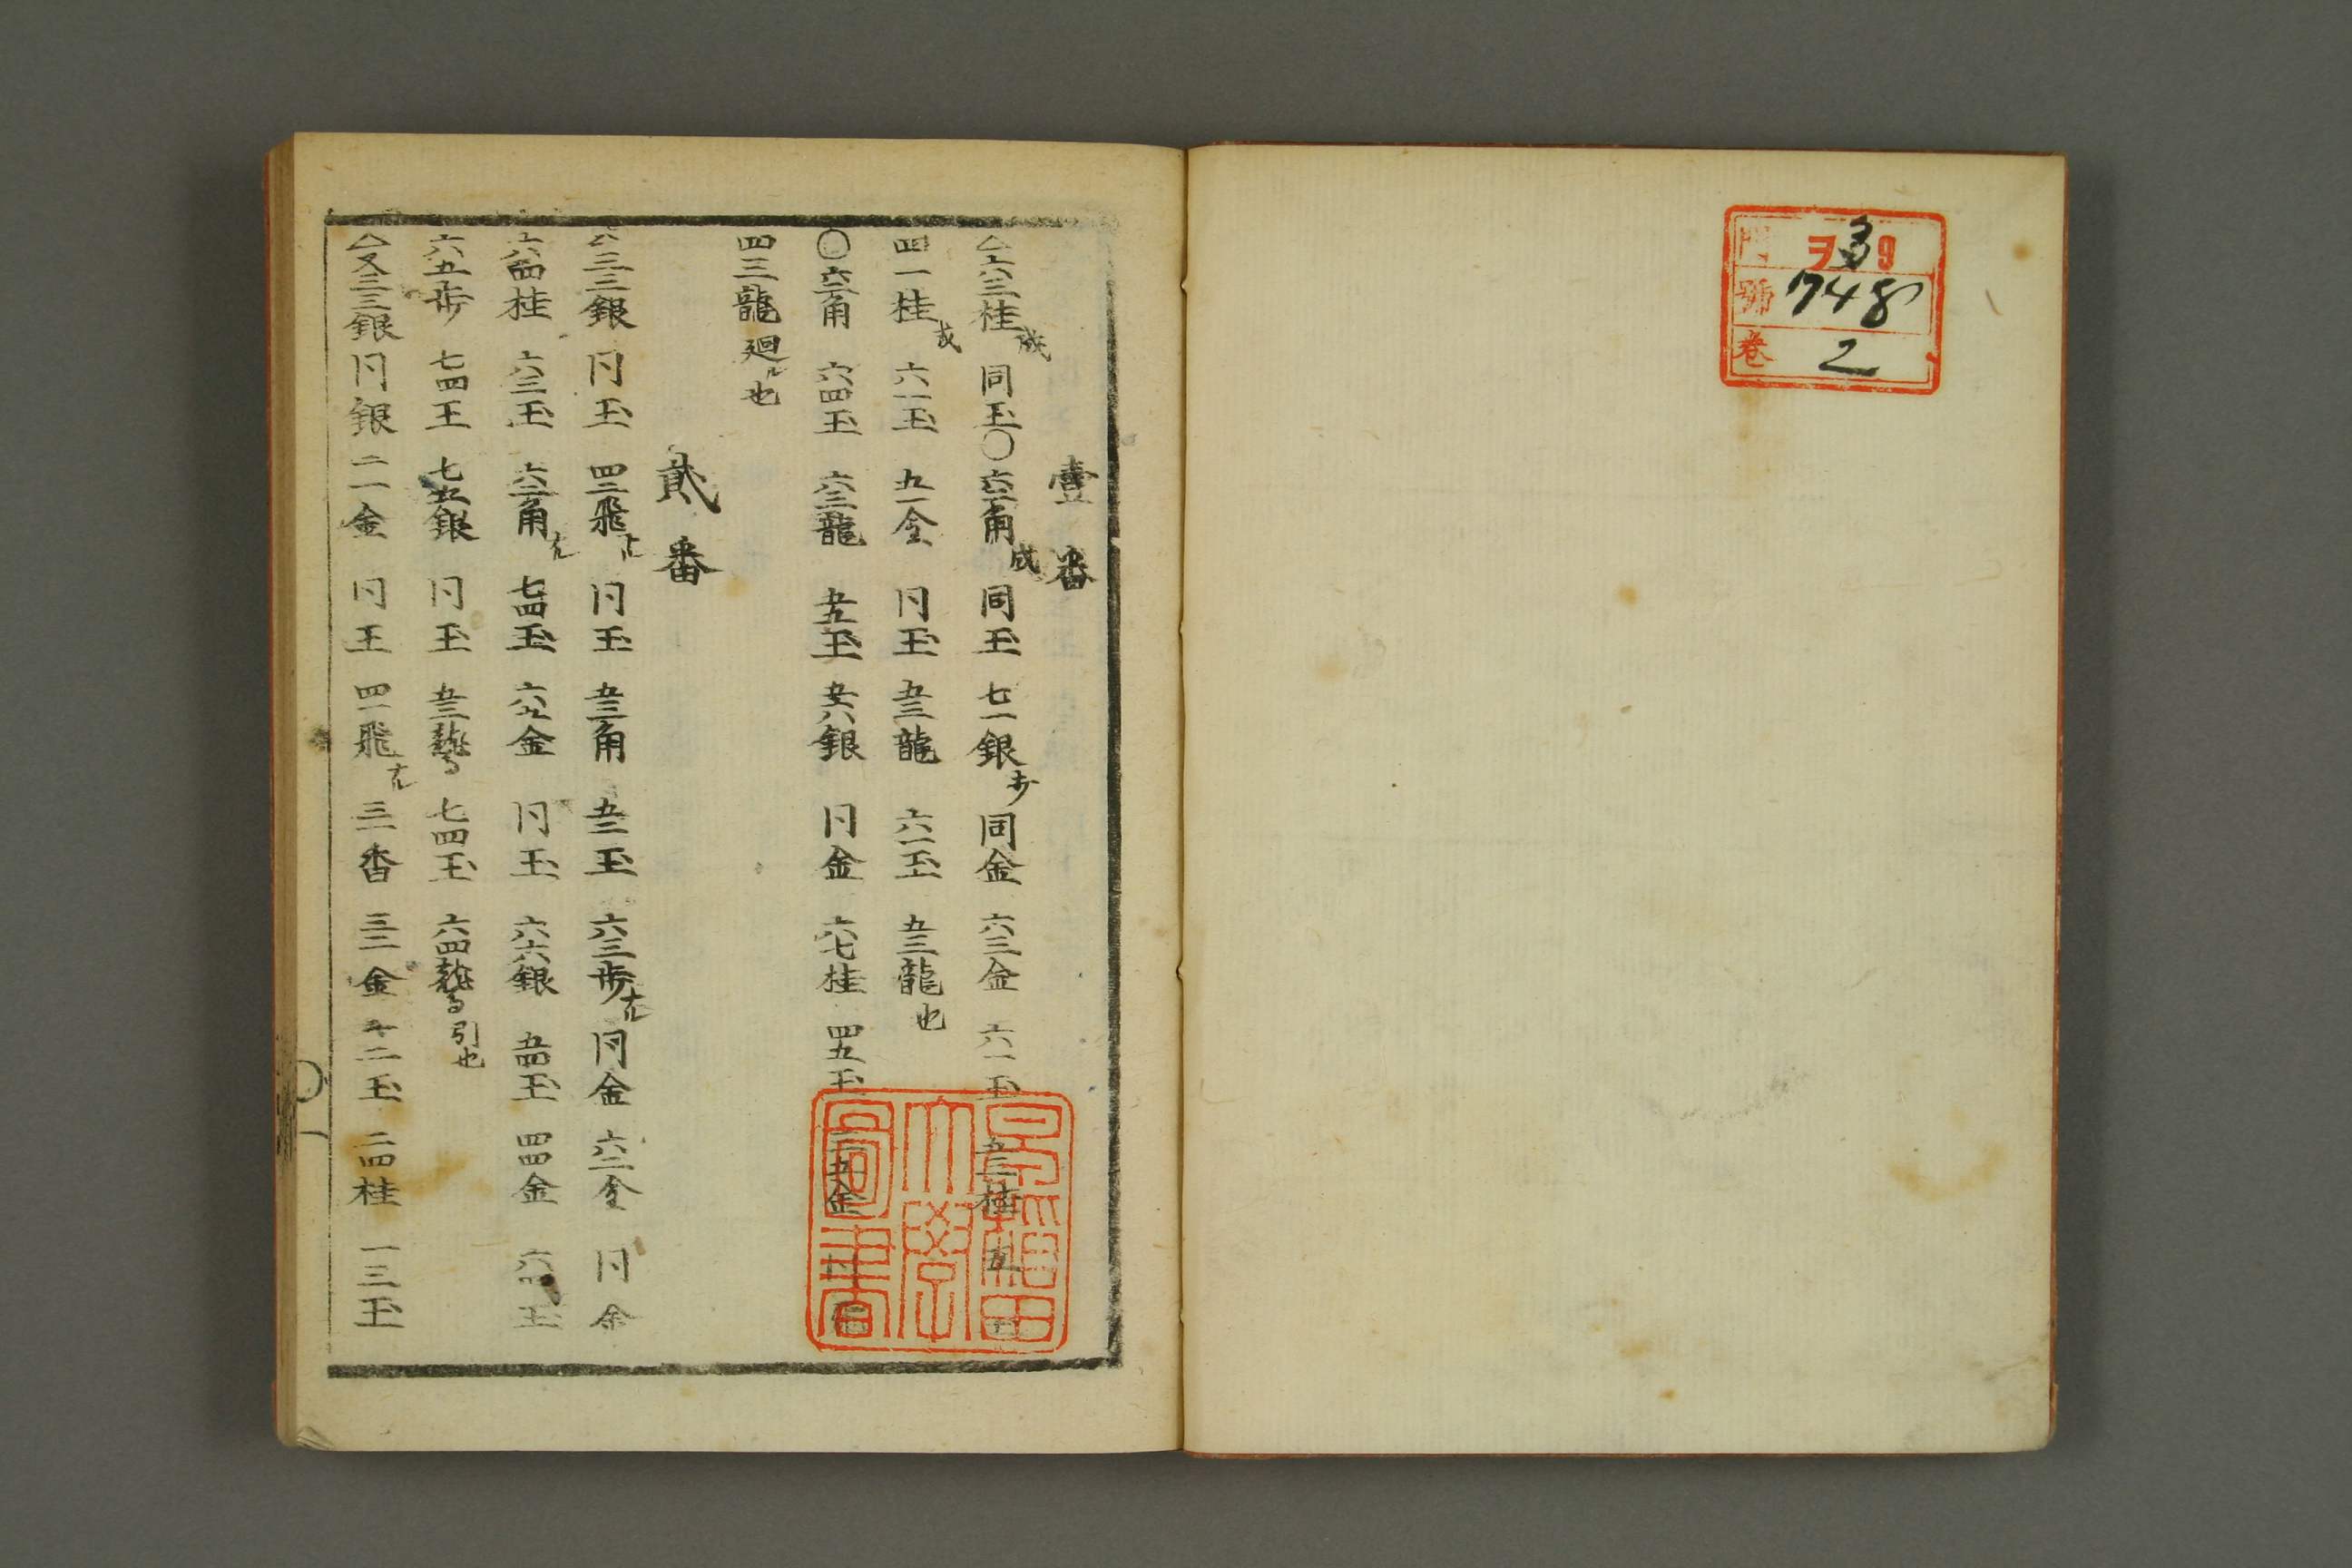 門 ヲ 3 9
號 748
巻 2
壹番
△六三桂成 同玉〇六二角成 同玉 七一銀 同金 六三金 六一玉 五三桂
四一桂成 六一玉 五一金 同玉 五三龍 六一玉 五三龍也
〇六二角 六四玉 六三龍 五五玉 五六銀 同金 六七桂 四五玉 金
四三龍廻ル也
貳番
△三三銀 同玉 四三飛ナル 同玉 五三角 五二玉 六三歩ナル 同金 六二金 同金
六四桂 六三玉 角ナル 七四玉 金 同玉 六六銀 五四玉 四四金 玉
六五歩 七四玉 七五銀 同玉 七四玉 六四 引也
△又三三銀 同銀 二一金 同玉 四一飛ナル 三一香 金 十二玉 二四桂 一三玉
早稲田
大學
圖書
一